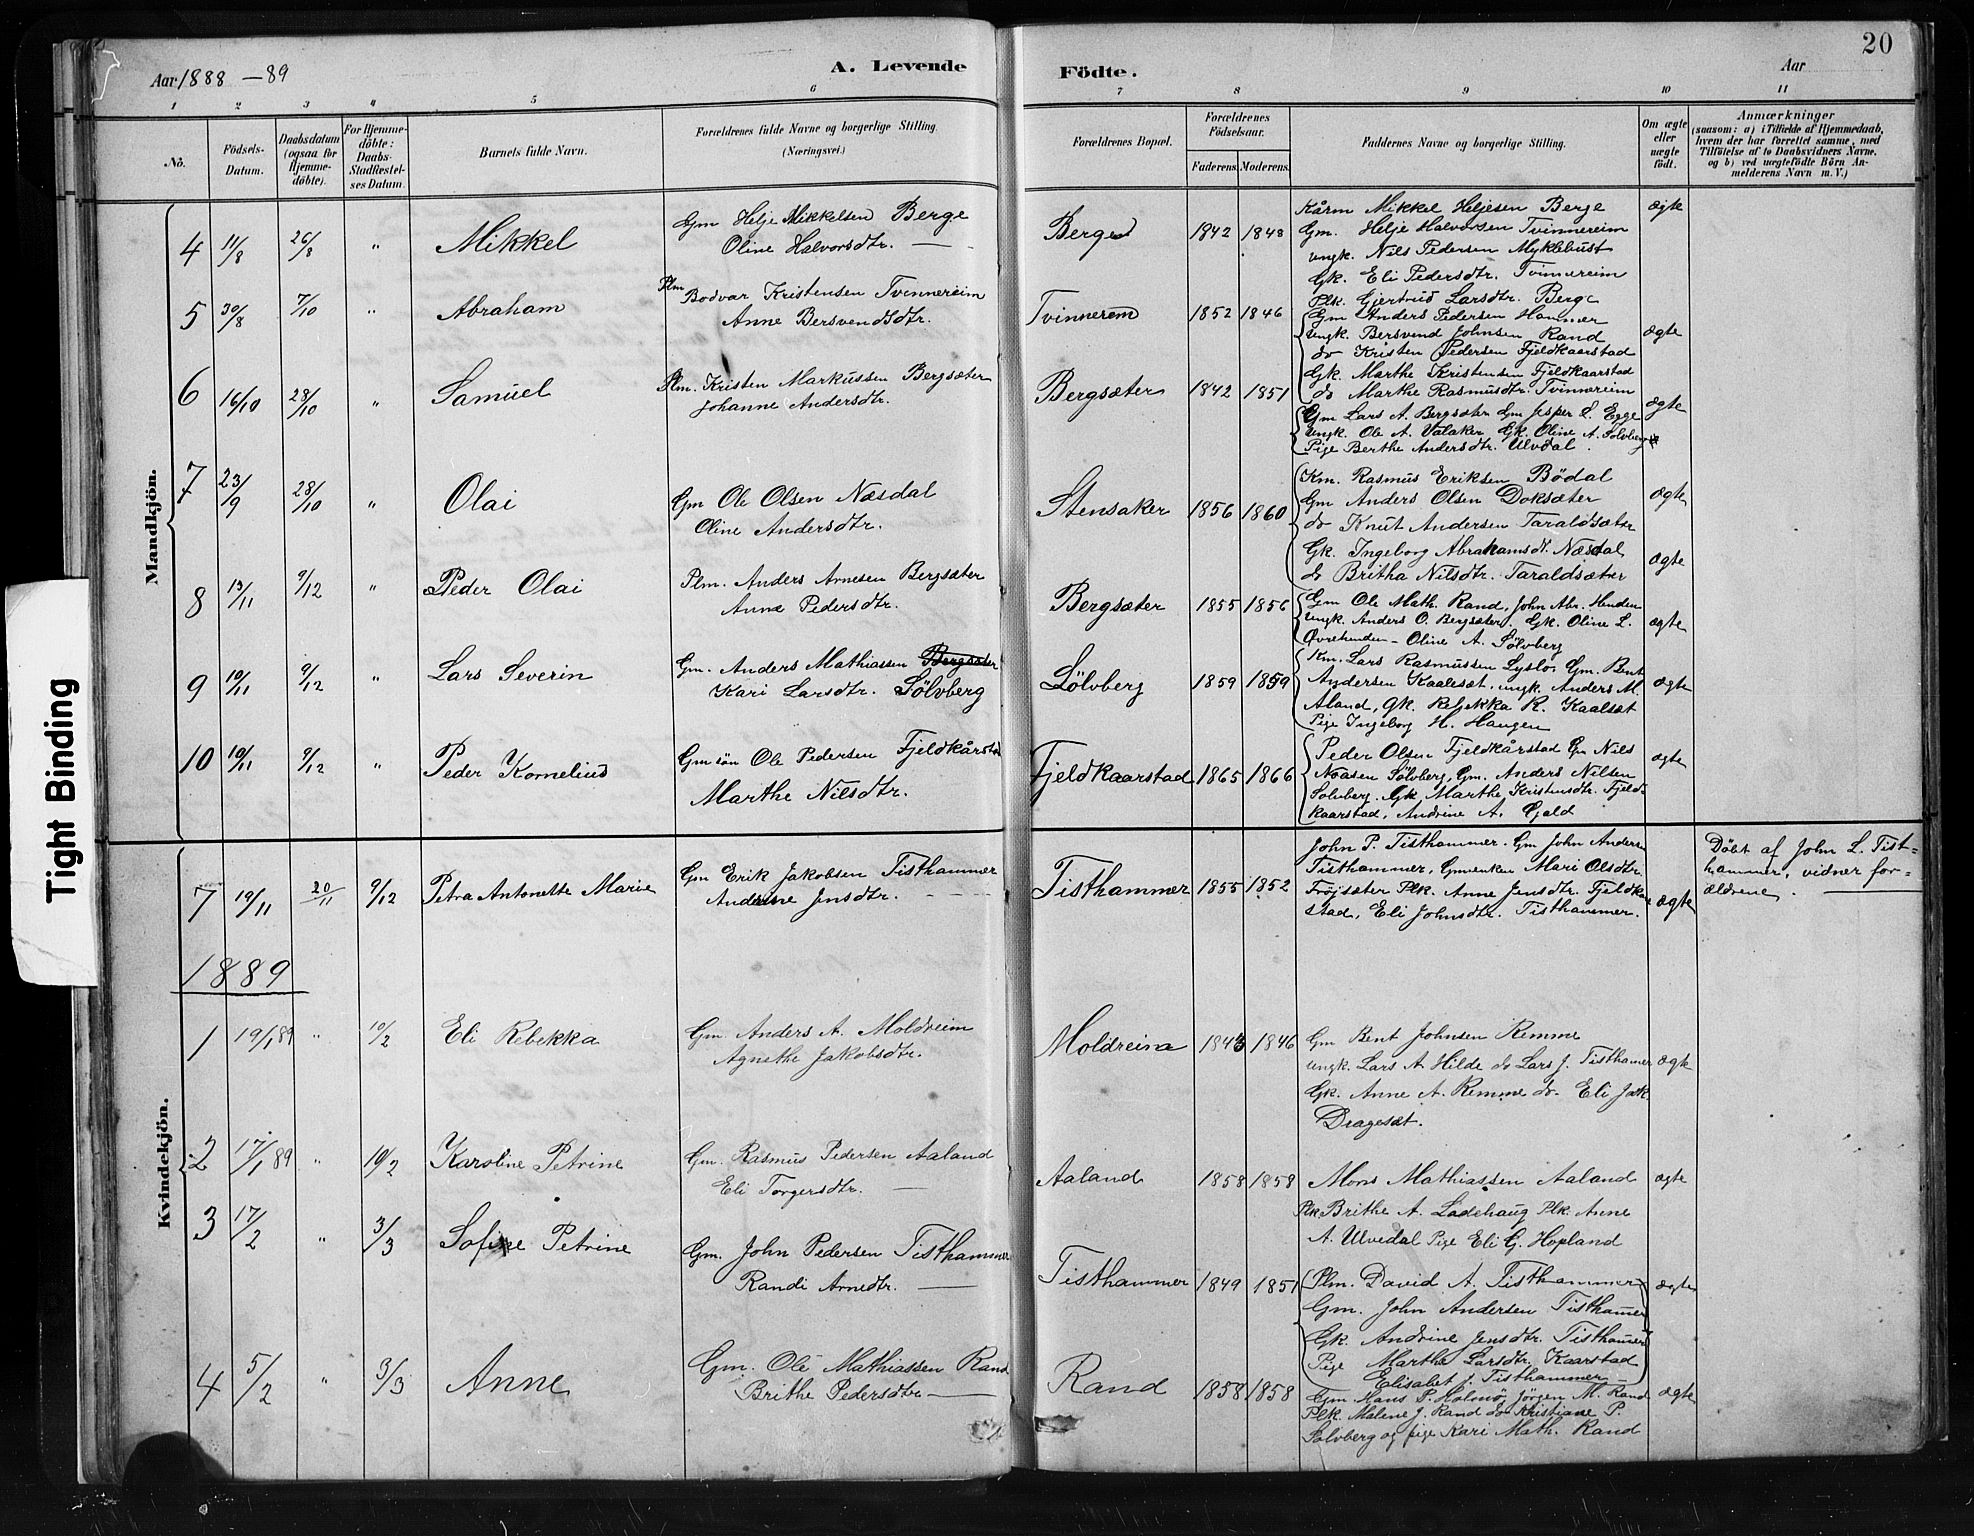 20
Aar 1888 – 89
A. Levende
Födte.
Aar
1 2 3 4 5 6 7 8 9 10 11
No.
Födsels-Datum.
Daabsdatum (ogsaa for Hjemme-döbte).
For Hjemme-döbte: Daabs-Stadfæstel-ses Datum.
Barnets fulde Navn.
Forældrenes fulde Navne og borgerlige Stilling. (Næringsvei.)
Forældrenes Bopæl.
Forældrenes Födselsaar.
Faderens. Moderens.
Faddernes Navne og borgerlige Stilling.
Om ægte eller uægte födt.
Anmærkninger
(saasom: a) i Tilfælde af Hjemmedaab,
hvem der har forrettet samme, med
Tilföielse af to Daabsvidners Navne.
og b) ved uægtefödte Börn An-
melderens Navn m. V.)
Mandkjön.
4 11/8 26/8 " Mikkel
Gm Helje Mikkelsen Berge
Oline Halvorsdtr. —
Berge 1842 1848
Kårm Mikkel Heljesen Berge
Gm. Helje Halvorsen Tvinnereim
ungk. Nils Pedersen Myklebust
Gk. Eli Pedersdtr. Tvinnereim
Plk. Gjertrud Larsdtr. Berge
ægte
5 30/8 7/10 " Abraham
Plm Bodvar Kristensen Tvinnereim
Anne Bersvendsdtr.
Tvinnereim 1852 1846
Gm Anders Pedersen Hammer
ungk. Bersvend Johnsen Rand
do Kristen Pedersen Fjeldkaarstad
Gk. Marthe Kristensen Fjeldkaarstad
do Marthe Rasmusdtr. Tvinnereim
ægte
6 16/10 28/10 " Samuel
Plm. Kristen Markussen Bergsæter
Johanne Andersdtr.
Bergsæter 1842 1851
Gm Lars A. Bergsæter Gm Jesper L. Egge
ungk. Ole A. Valaker Gk. Oline A. Sölvberg
Pige Berthe Andersdtr. Ulvdal.
ægte
7 23/9 28/10 " Olai
Gm Ole Olsen Næsdal
Oline Andersdtr.
Stensaker 1856 1860
Km. Rasmus Eriksen Bödal
Gm Anders Olsen Doksæter
do Knut Andersen Taraldsæter
Gk. Ingeborg Abrahamsdt. Næsdal
do Britha Nilsdtr. Taraldsæter
ægte
ægte
8 13/11 9/12 " Peder Olai
Plm. Anders Arnesen Bergsæter
Anne Pedersdtr.
Bergsæter 1855 1856
Gm Ole Math. Rand, John Abr. Henden
ungk. Anders O. Bergsæter. Gk. Oline L.
Övrehenden – Oline A. Sölvberg
ægte
9 10/11 9/12 " Lars Severin
Gm. Anders Mathiassen Bergsæter
Kari Larsdtr. Sölvberg
Sölvberg 1859 1859
Km. Lars Rasmussen Lyslo, Gm. Bent
Andersen Kaalesæt, ungk. Anders M.
Aland, Gk. Rebekka R. Kaalsæt
Pige Ingeborg H. Haugen
ægte
10 10/11 9/12 " Peder Kornelius
Gmsön Ole Pedersen Fjeldkårstad
Marthe Nilsdtr.
Fjeldkaarstad 1865 1866
Peder Olsen Fjeldkårstad Gm Nils
Noasen Sölvberg, Gm. Anders Nilsen
Solvberg. Gk Marthe Kristensdtr. Fjeld-
kaarstad, Andrine A. Gjald
ægte
Kvindekjön.
7 19/11 20/11 9/12 Petra Antonette Marie
Gm Erik Jakobsen Tisthammer
Andrine Jensdtr. —
Tisthammer 1855 1852
John P. Tisthammer. Gm John Andersen
Tisthammer, Gmenken Mari Olsdtr.
Fröisæter Plk. Anne Jensdtr. Fjeldkaar
stad, Eli Johnsdtr. Tisthammer.
ægte
Döbt af John L. Tist=
hammer, vidner for=
ældrene.
1889
1 19/1 89 " 10/2 Eli Rebekka
Gm. Anders A. Moldreim
Agnethe Jakobsdtr.
Moldreim 1843 1846
Gm Bent Johnsen Remme
ungk. Lars A Hilde do Lars J. Tisthamer
Gk. Anne A. Remme do. Eli Jak
Dragesæt.
ægte
2 17/1 89 " 10/2 Karoline Petrine
Gm. Rasmus Pedersen Aaland
Eli Torgersdtr. —
Aaland 1858 1858
Mons Mathiassen Aaland
Plk Brithe A. Ladehaug Plk. Anne
A. Ulvedal Pige Eli G. Hopland
ægte
3 17/2 " 3/3 Sofie Petrine
Gm. John Pedersen Tisthammer
Randi Arnedtr. —
Tisthammer 1849 1851
Plm. David A. Tisthammer
Gm. John Andersen Tisthamer
Gk. Andrine Jensdtr. Tisthamer
Pige Marthe Larsdtr. Kaarstad
Elisabet J. Tisthammer
ægte
4 5/2 " 3/3 Anne
Gm. Ole Mathiassen Rand
Brithe Pedersdtr —
Rand 1858 1858
Gm. Hans P. Holmö, Jörgen M. Rand
Plk. Malene J. Rand do Kristiane P.
Solvberg og pige Kari Math. Rand
ægte
Tight Binding